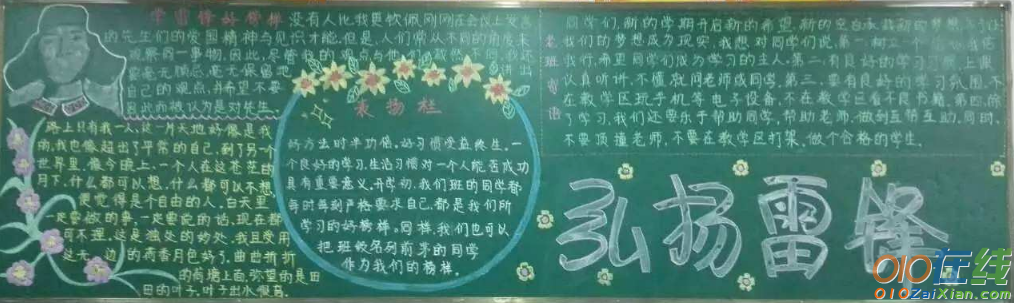 学雷锋好榜样
没有人比我更钦佩刚刚在会议上发言
的先生们的爱国精神与见识才能。但是,人们常从不同的角度来
观察同一事物。因此,尽管我的观点与他们截然不同,我还
要毫无顾忌、毫无保留地
自己的观点,并希望不要
因此而被认为是对先生
路上只有我一人,这一片天地好像是我
的,我也像超出了平常的自己,到了另一个
世界里。像今晚上,一个人在这苍茫的
月下,什么都可以想,什么都可以不想,
便觉得是个自由的人。白天里
一定要做的事,一定要说的话,现在都
可不理。这是独处的妙处,我且受用
这无边的荷香月色好了。曲曲折折
的荷塘上面,弥望的是田
田的叶子。叶子出水很高
表扬栏
好方去时半功倍,好习惯受益终生。一
个良好的学习、生活习惯对一个人能否成功
具有重要意义。开学初,我们班的同学都
每时每刻严格要求自己,都是我们所
学习的好榜样。同样,我们也可以
把班级名列前茅的同学
作为我们的榜样。
老班寄语
同学们,新的学期开启新的希望,新的空白承载新的梦想。为了让
我们的梦想成为现实,我想对同学们说:第一
我们,希望同学们成为学习的主人。第二,有良好的学习习惯,上课
认真听讲,不懂就问老师或同学。第三,要有良好的学习氛围,不
在教学区玩手机等电子设备,不在教学区看不良书籍。第四,除
了学习,我们还要乐于帮助同学,帮助老师,做到互帮互助。同时,
不要顶撞老师,不要在教学区打架,做个合格的学生。
弘扬雷锋
010在线
010ZaiXian.com